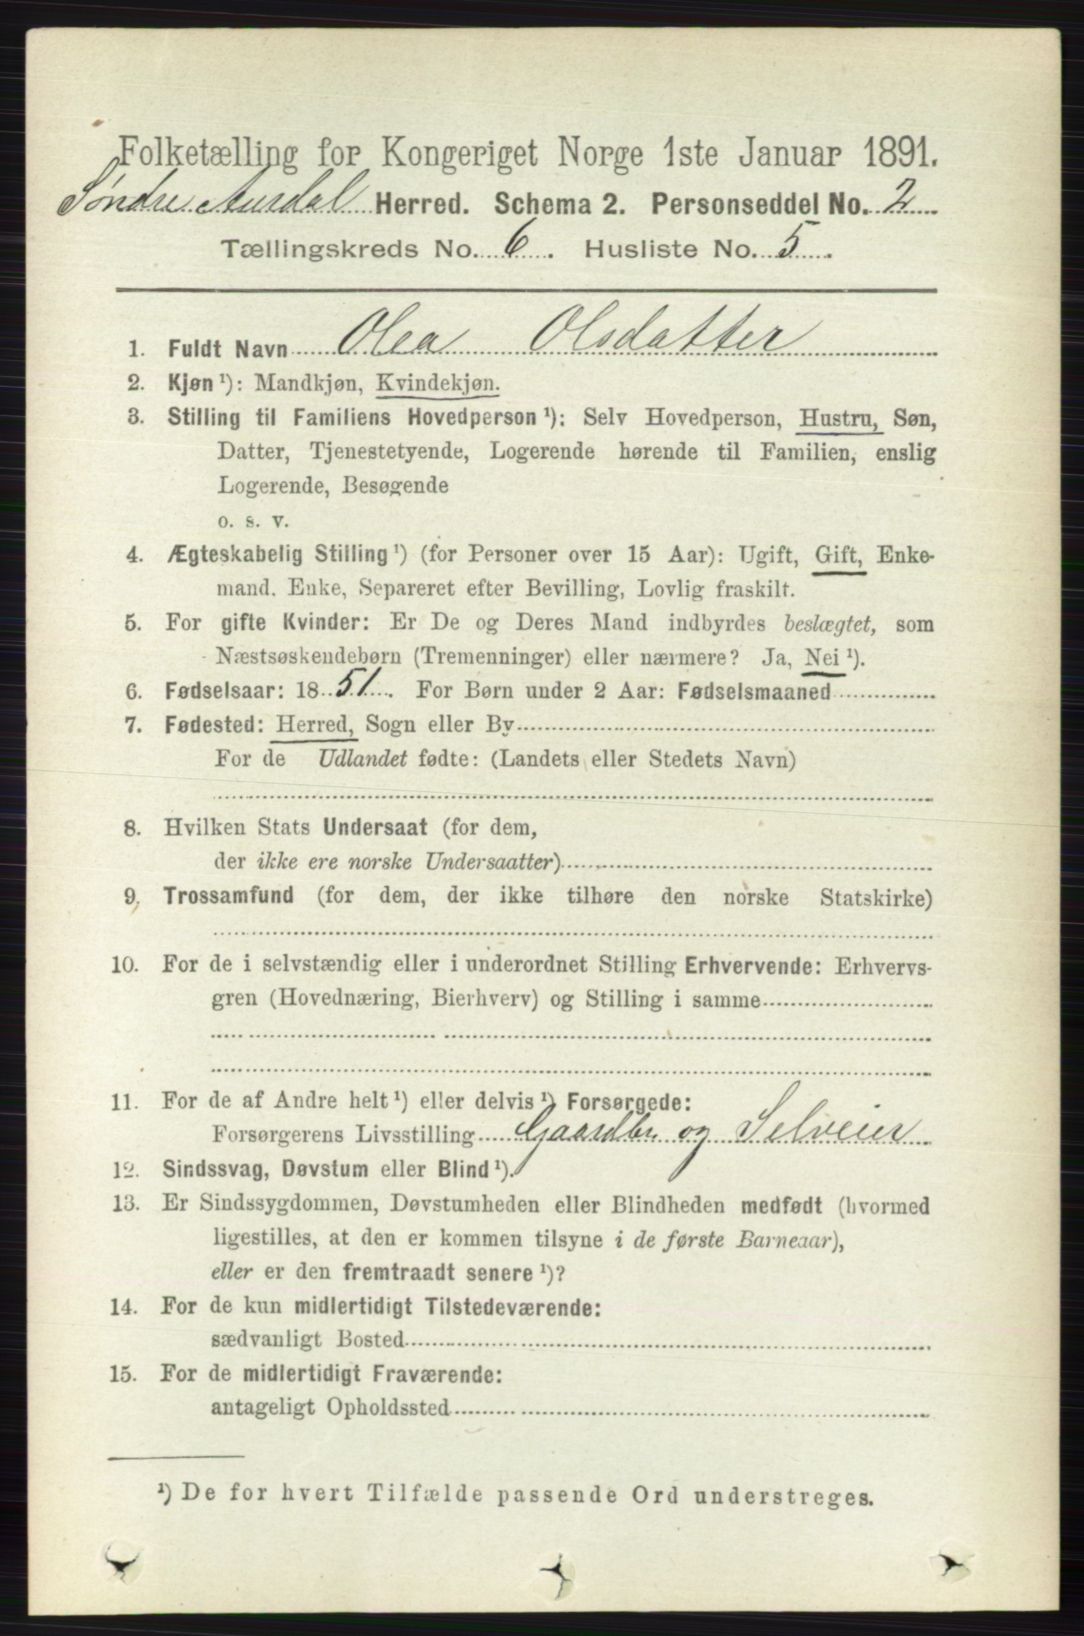 Folketælling for Kongeriget Norge 1ste Januar 1891.
Søndre Aurdal Herred. Schema 2. Personseddel No. 2
Tællingskreds No. 6. Husliste No. 5.
1. Fuldt Navn Olea Olsdatter
2. Kjøn ¹): Mandkjøn, Kvindekjøn.
3. Stilling til Familiens Hovedperson ¹): Selv Hovedperson, Hustru, Søn,
Datter, Tjenestetyende, Logerende hørende til Familien, enslig
Logerende, Besøgende
o. s. v.
4. Ægteskabelig Stilling ¹) (for Personer over 15 Aar): Ugift, Gift, Enke-
mand, Enke, Separeret efter Bevilling, Lovlig fraskilt.
5. For gifte Kvinder: Er De og Deres Mand indbyrdes beslægtet, som
Næstsøskendebørn (Tremenninger) eller nærmere? Ja, Nei ¹).
6. Fødselsaar: 1851. For Børn under 2 Aar: Fødselsmaaned
7. Fødested: Herred, Sogn eller By
For de Udlandet fødte: (Landets eller Stedets Navn)
8. Hvilken Stats Undersaat (for dem,
der ikke ere norske Undersaatter)
9. Trossamfund (for dem, der ikke tilhøre den norske Statskirke)
10. For de i selvstændig eller i underordnet Stilling Erhvervende: Erhvervs-
gren (Hovednæring, Bierhverv) og Stilling i samme
11. For de af Andre helt ¹) eller delvis ¹) Forsørgede:
Forsørgerens Livsstilling Gaardbr. og Selveier
12. Sindssvag, Døvstum eller Blind ¹).
13. Er Sindssygdommen, Døvstumheden eller Blindheden medfødt (hvormed
ligestilles, at den er kommen tilsyne i de første Barneaar),
eller er den fremtraadt senere ¹)?
14. For de kun midlertidigt Tilstedeværende:
sædvanligt Bosted
15. For de midlertidigt Fraværende:
antageligt Opholdssted
¹) De for hvert Tilfælde passende Ord understreges.